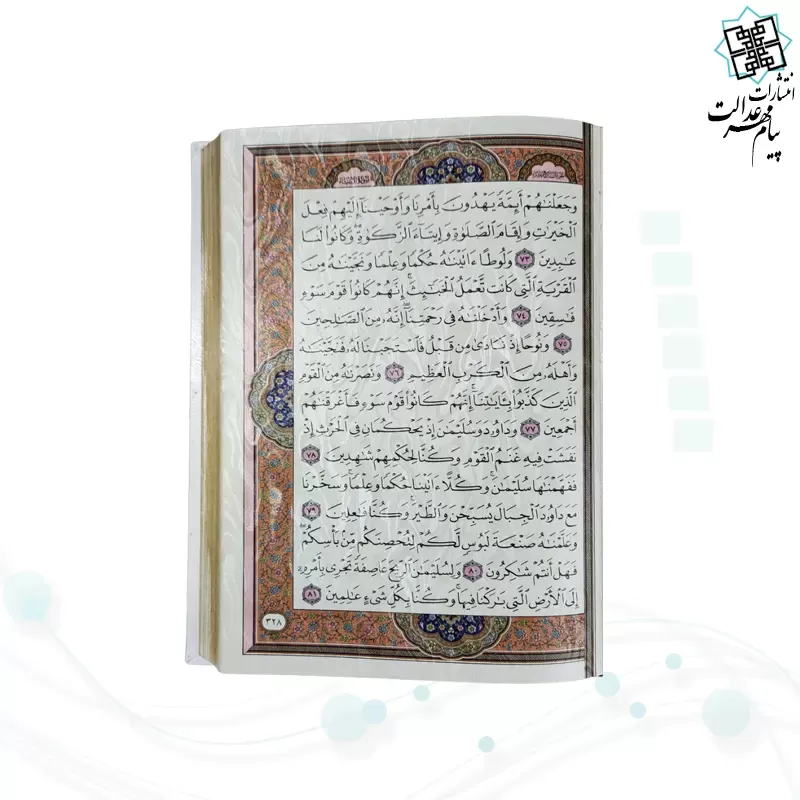 انتشارات
پیام مهر عدالت
وَجَعَلْنَٰهُمْ أَئِمَّةً يَهْدُونَ بِأَمْرِنَا وَأَوْحَيْنَآ إِلَيْهِمْ فِعْلَ
ٱلْخَيْرَٰتِ وَإِقَامَ ٱلصَّلَوٰةِ وَإِيتَآءَ ٱلزَّكَوٰةِ ۖ وَكَانُوا۟ لَنَا
عَٰبِدِينَ ٧٣ وَلُوطًا ءَاتَيْنَٰهُ حُكْمًا وَعِلْمًا وَنَجَّيْنَٰهُ مِنَ
ٱلْقَرْيَةِ ٱلَّتِى كَانَت تَّعْمَلُ ٱلْخَبَٰٓئِثَ ۗ إِنَّهُمْ كَانُوا۟ قَوْمَ سَوْءٍ
فَٰسِقِينَ ٧٤ وَأَدْخَلْنَٰهُ فِى رَحْمَتِنَآ ۖ إِنَّهُۥ مِنَ ٱلصَّٰلِحِينَ
٧٥ وَنُوحًا إِذْ نَادَىٰ مِن قَبْلُ فَٱسْتَجَبْنَا لَهُۥ فَنَجَّيْنَٰهُ
وَأَهْلَهُۥ مِنَ ٱلْكَرْبِ ٱلْعَظِيمِ ٧٦ وَنَصَرْنَٰهُ مِنَ ٱلْقَوْمِ
ٱلَّذِينَ كَذَّبُوا۟ بِـَٔايَٰتِنَآ ۚ إِنَّهُمْ كَانُوا۟ قَوْمَ سَوْءٍ فَأَغْرَقْنَٰهُمْ
أَجْمَعِينَ ٧٧ وَدَاوُۥدَ وَسُلَيْمَٰنَ إِذْ يَحْكُمَانِ فِى ٱلْحَرْثِ إِذْ
نَفَشَتْ فِيهِ غَنَمُ ٱلْقَوْمِ وَكُنَّا لِحُكْمِهِمْ شَٰهِدِينَ ٧٨
فَفَهَّمْنَٰهَا سُلَيْمَٰنَ ۚ وَكُلًّا ءَاتَيْنَا حُكْمًا وَعِلْمًا ۚ وَسَخَّرْنَا
مَعَ دَاوُۥدَ ٱلْجِبَالَ يُسَبِّحْنَ وَٱلطَّيْرَ ۚ وَكُنَّا فَٰعِلِينَ ٧٩
وَعَلَّمْنَٰهُ صَنْعَةَ لَبُوسٍ لَّكُمْ لِتُحْصِنَكُم مِّنۢ بَأْسِكُمْ ۖ
فَهَلْ أَنتُمْ شَٰكِرُونَ ٨٠ وَلِسُلَيْمَٰنَ ٱلرِّيحَ عَاصِفَةً تَجْرِى بِأَمْرِهِۦٓ
إِلَى ٱلْأَرْضِ ٱلَّتِى بَٰرَكْنَا فِيهَا ۚ وَكُنَّا بِكُلِّ شَىْءٍ عَٰلِمِينَ ٨١
٣٢٨